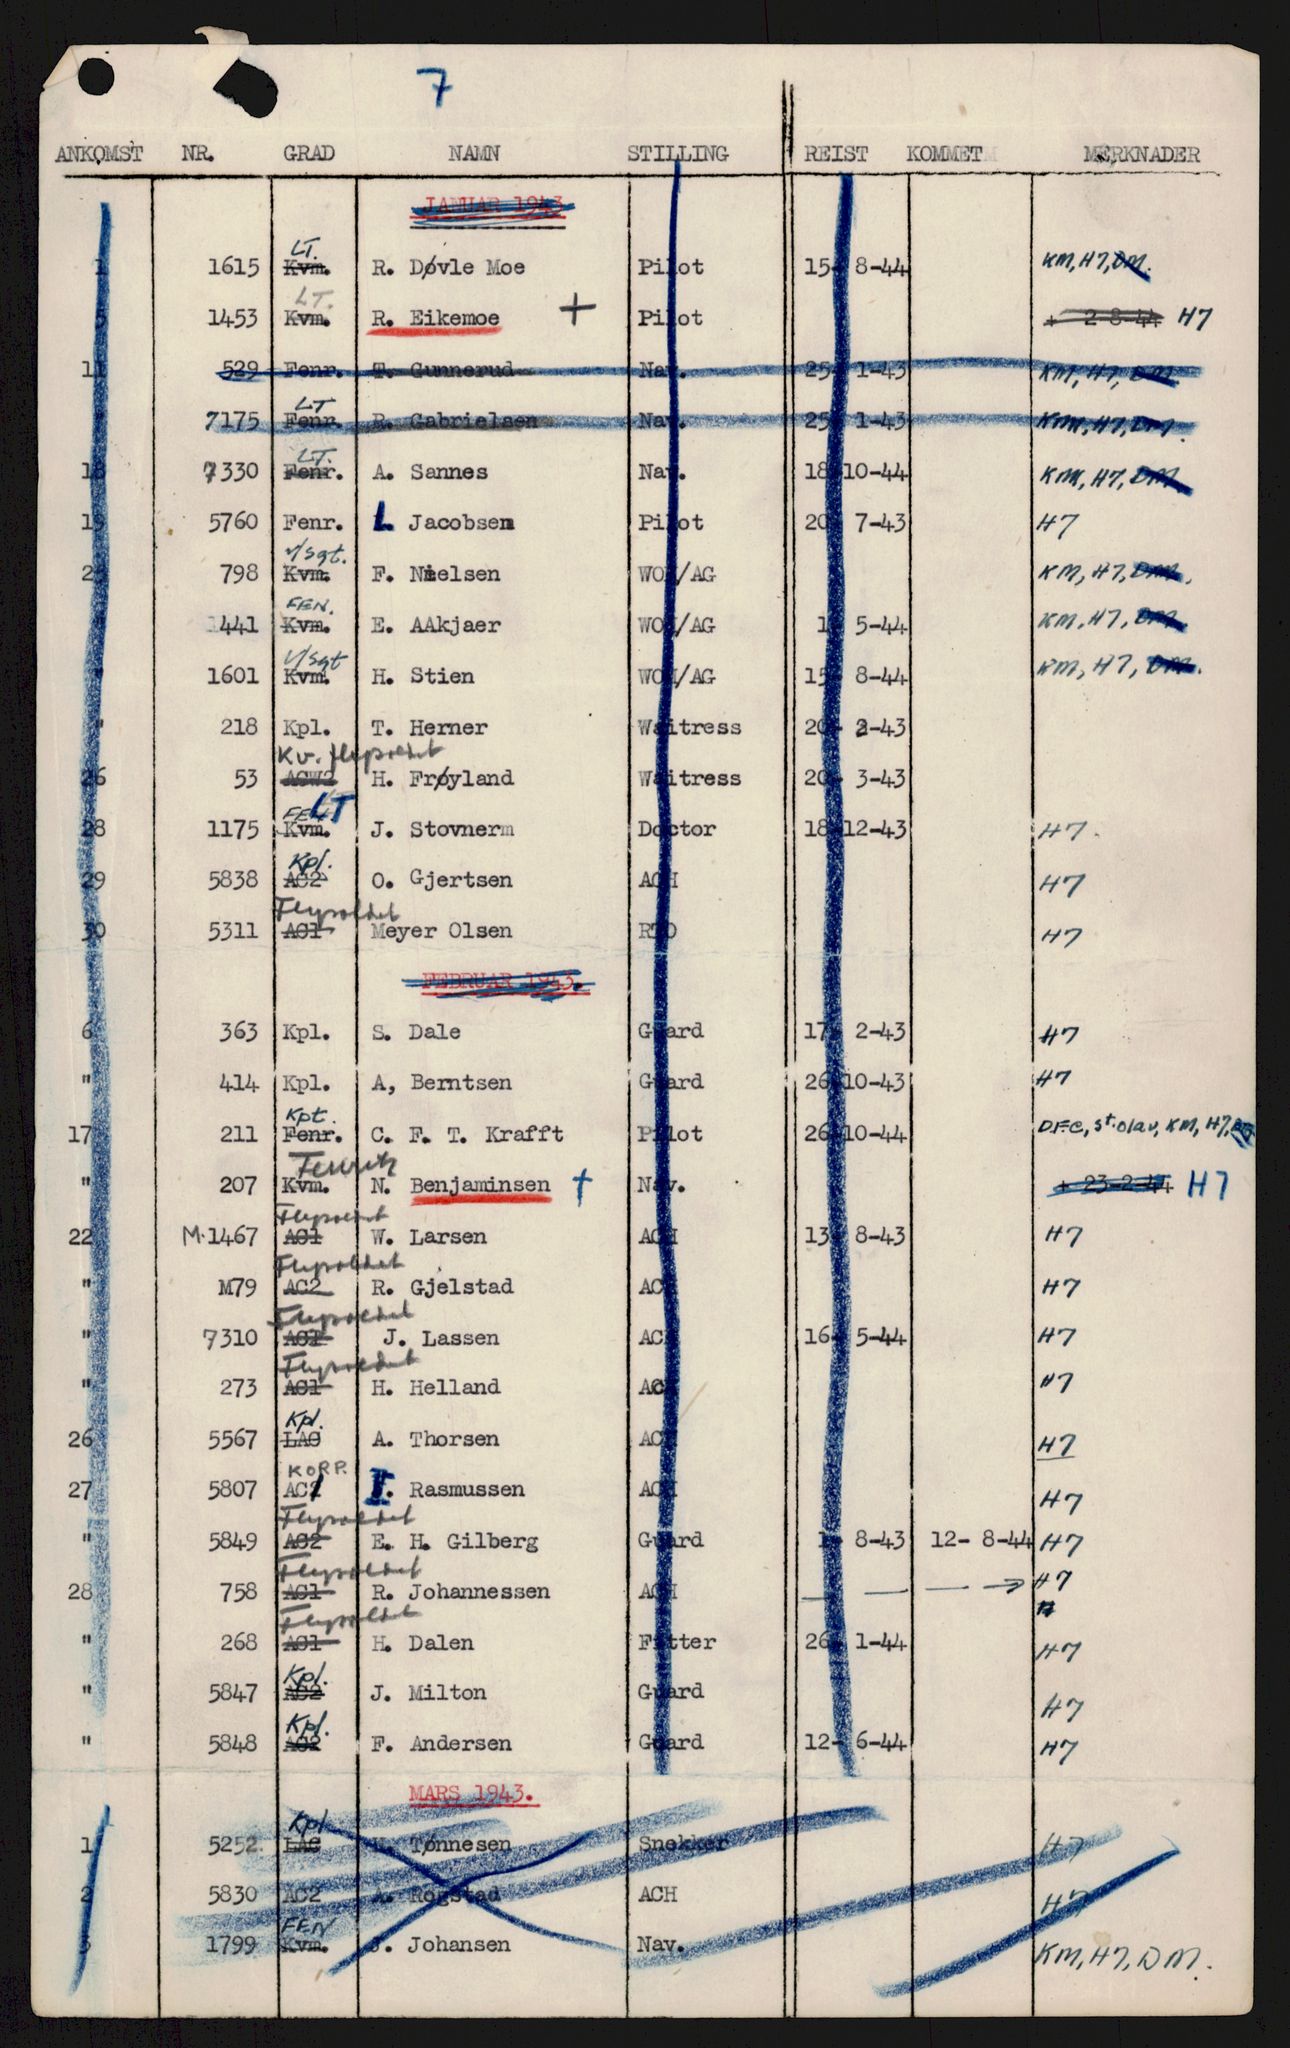 7
ANKOMST NR. GRAD NAMN STILLING REIST KOMMET MERKNADER
JANUAR 1943
LT.
1 1615 Kvm. R. Døvle Moe Pilot 15- 8-44 KM, H7, DM.
LT.
5 1453 Kvm. R. Eikemoe + Pilot + 2-8-44 H7
11 529 Fenr. T. Gunnerud Nav. 25- 1-43 KM, H7, DM
LT
" 7175 Fenr. R. Gabrielsen Nav. 25- 1-43 KM, H7, DM.
LT.
18 7330 Fenr. A. Sannes Nav. 18-10-44 KM, H7, DM
19 5760 Fenr. L Jacobsen Pilot 20- 7-43 H7
v/sgt.
25 798 Kvm. F. Nielsen WOM/AG KM, H7, DM.
FEN.
" 1441 Kvm. E. AAkjaer WOM/AG 1- 5-44 KM, H7, DM
v/sgt
" 1601 Kvm. H. Stien WOM/AG 15- 8-44 KM, H7, DM.
" 218 Kpl. T. Herner Waitress 20- 2-43
Kv. flysoldat
26 53 ACW2 H. Frøyland Waitress 20- 3-43
LT
28 1175 Kvm. J. Stovnerm Doctor 18-12-43 H7.
Kpl.
29 5838 AC2 O. Gjertsen ACH H7
Flysoldat
30 5311 AC1 Meyer Olsen RTO H7
FEBRUAR 1943.
6 363 Kpl. S. Dale Guard 17- 2-43 H7
" 414 Kpl. A, Berntsen Guard 26-10-43 H7
Kpt.
17 211 Fenr. C. F. T. Krafft Pilot 26-10-44 DFC, St.olav, KM, H7,
" 207 Kvm. N. Benjaminsen † Nav. + 23-2-44 H7
Flysoldat
22 M.1467 AC1 W. Larsen ACH 13- 8-43 H7
Flysoldat
" M79 AC2 R. Gjelstad ACH H7
Flysoldat
" 7310 AC1 J. Lassen ACH 16- 5-44 H7
Flysoldat
" 273 AC1 H. Helland ACH H7
Kpl.
26 5567 LAC A. Thorsen ACH H7
KORP.
27 5807 AC1 I. Rasmussen ACH H7
Flysoldat
" 5849 AC2 E. H. Gilberg Guard 1- 8-43 12- 8-44 H7
Flysoldat
28 758 AC1 R. Johannessen ACH — — — → H7
Flysoldat
" 268 AC1 H. Dalen Fitter 26- 1-44 H7
Kpl.
" 5847 AC2 J. Milton Guard H7
Kpl.
" 5848 AC2 F. Andersen Guard 12- 6-44 H7
MARS 1943.
Kpl
1 5252 LAC Tønnesen Snekker H7
2 5830 AC2 A. Rogstad ACH H7
FEN
3 1799 Kvm. J. Johansen Nav. KM, H7, DM.